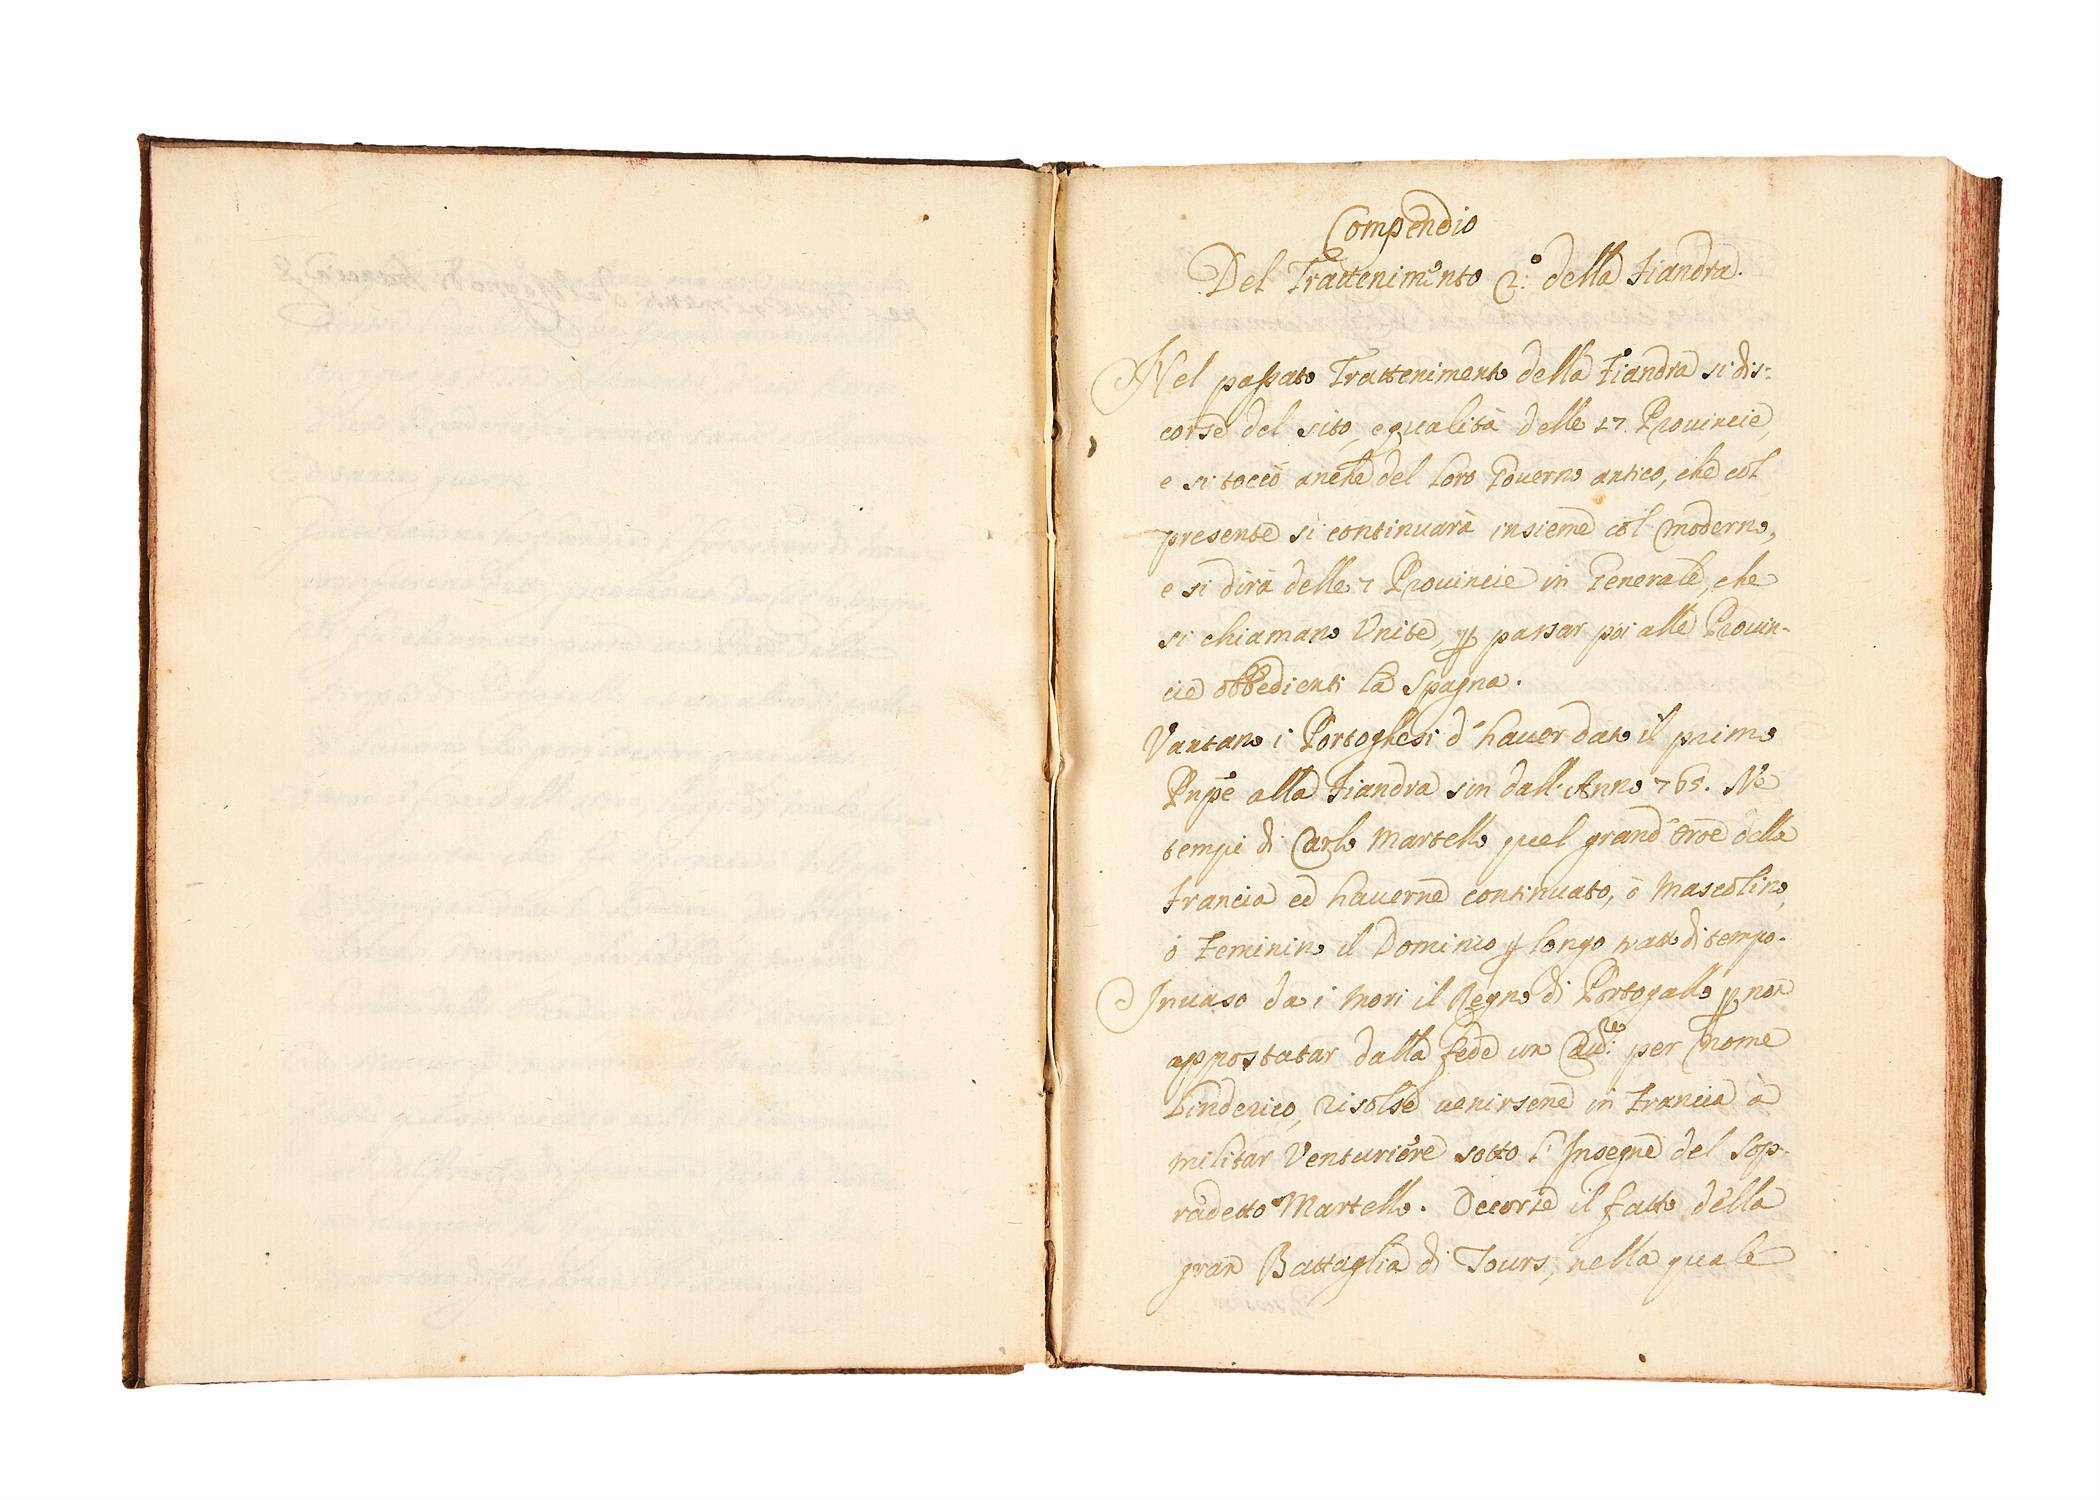 Compendio
Del Trattenimento 2.° della Fiandra.
Nel passato Trattenimento della Fiandra si dis-
corse del sito, e qualità delle 17 Prouincie,
e si toccò anche del loro Gouerno antico, che col
presente si continuarà insieme col moderno,
e si dirà delle 7 Prouincie in Generale, che
si chiamano Vnite, ꝑ passar poi alle Prouin-
cie obbedienti la Spagna.
Vantano i Portoghesi d'hauer dato il primo
Pnpe alla Fiandra sin dall'Anno 765. Ne
tempi di Carlo Martello quel grand'Eroe della
Francia ed hauerne continuato, ò Mascolino,
ò Feminino il Dominio ꝑ longo tratto di tempo.
Inuaso da i Mori il Regno di Portogallo ꝑ non
appostatar dalla fede un Cau.re per nome
Linderico, risolse uenirsene in Francia à
militar Venturiere sotto l'Insegne del sop-
radetto Martello. Occorse il fatto della
gran Battaglia di Tours, nella quale